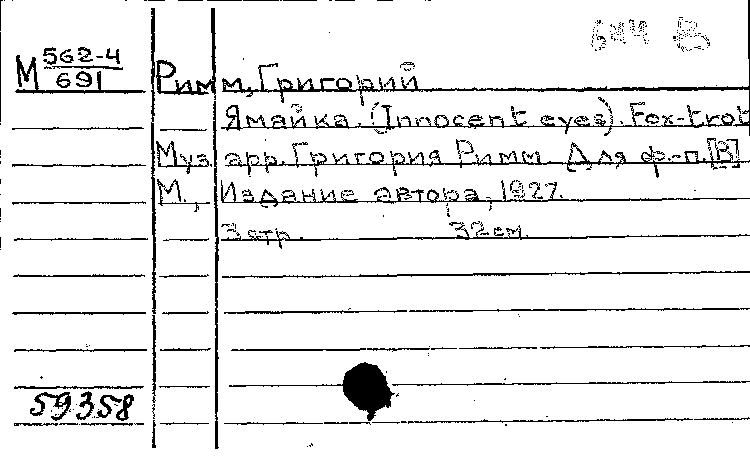 644 В
М 562-4
691
Римм, Григорий
Ямайка. (Innocent eyes). Fox-trot
Муз. арр. Григория Римм. Для ф.-п. [В]
М., Издание автора, 1927.
3 стр. 32 см.
59358